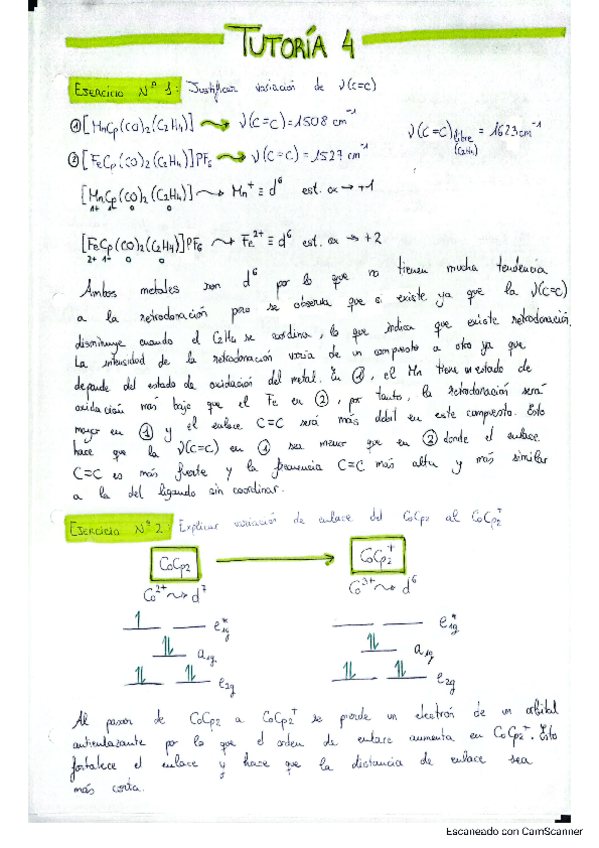 TUTORÍA 4
EJERCICIO Nº 1: Justificar variación de ν(C=C)
① [MnCp(CO)2(C2H4)] ⇝ ν(C=C) = 1508 cm⁻¹
ν(C=C)libre = 1623 cm⁻¹
(C2H4)
② [FeCp(CO)2(C2H4)]PF6 ⇝ ν(C=C) = 1527 cm⁻¹
[MnCp(CO)2(C2H4)] ⇝ Mn⁺ ≡ d⁶ est. ox → +1
1+ 1- 0 0
[FeCp(CO)2(C2H4)]PF6 ⇝ Fe²⁺ ≡ d⁶ est. ox → +2
2+ 1- 0 0
Ambos metales son d⁶ por lo que no tienen mucha tendencia
a la retrodonación pero se observa que si existe ya que la ν(C=C)
disminuye cuando el C2H4 se cordina, lo que indica que existe retrodonación.
La intensidad de la retrodonación varia de un compuesto a otro ya que
depende del estado de oxidación del metal. En ①, el Mn tiene un estado de
oxidación más bajo que el Fe en ②, por tanto, la retrodonación será
mayor en ① y el enlace C=C será más debil en este compuesto. Esto
hace que la ν(C=C) en ① sea menor que en ② donde el enlace
C=C es más fuerte y la frecuencia C=C más alta y más similar
a la del ligando sin coordinar.
EJERCICIO Nº 2: Explicar variación de enlace del CoCp2 al CoCp2⁺
CoCp2 → CoCp2⁺
Co²⁺ ⇝ d⁷ Co³⁺ ⇝ d⁶
e1g* e1g*
a1g a1g
e2g e2g
Al pasar de CoCp2 a CoCp2⁺ se pierde un electrón de un orbital
antienlazante por lo que el orden de enlace aumenta en CoCp2⁺. Esto
fortalece el enlace y hace que la distancia de enlace sea
más corta.
Escaneado con CamScanner